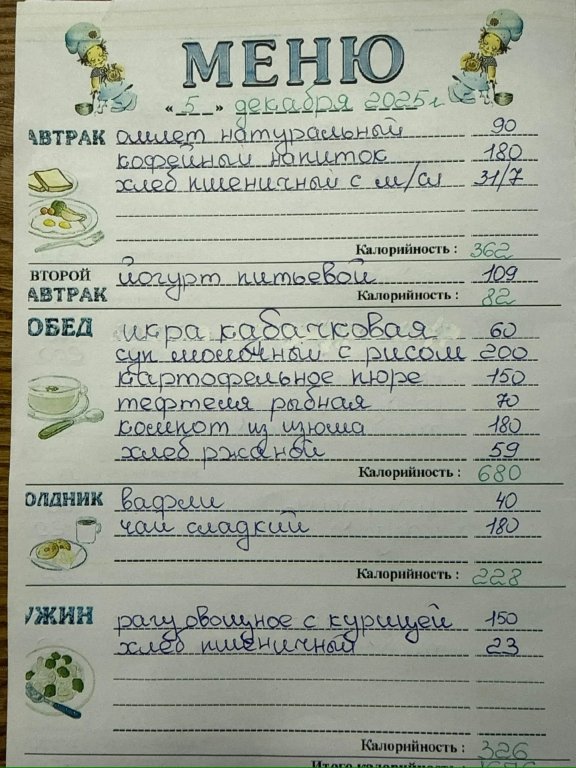 МЕНЮ
«5» декабря 2025г
АВТРАК омлет натуральный 90
кофейный напиток 180
хлеб пшеничный с м/сл 31/7
Калорийность : 362
ВТОРОЙ АВТРАК йогурт питьевой 109
Калорийность : 82
ОБЕД икра кабачковая 60
суп молочный с рисом 200
картофельное пюре 150
тефтеля рыбная 70
компот из изюма 180
хлеб ржаной 59
Калорийность : 680
ОЛДНИК вафли 40
чай сладкий 180
Калорийность : 228
УЖИН рагу овощное с курицей 150
хлеб пшеничный 23
Калорийность : 326
Итого калорийность :